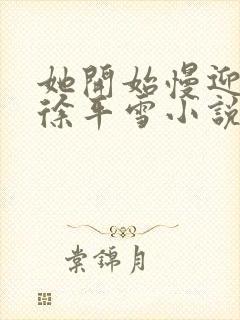 她開始慢迎
徐平雪小說
棠錦月